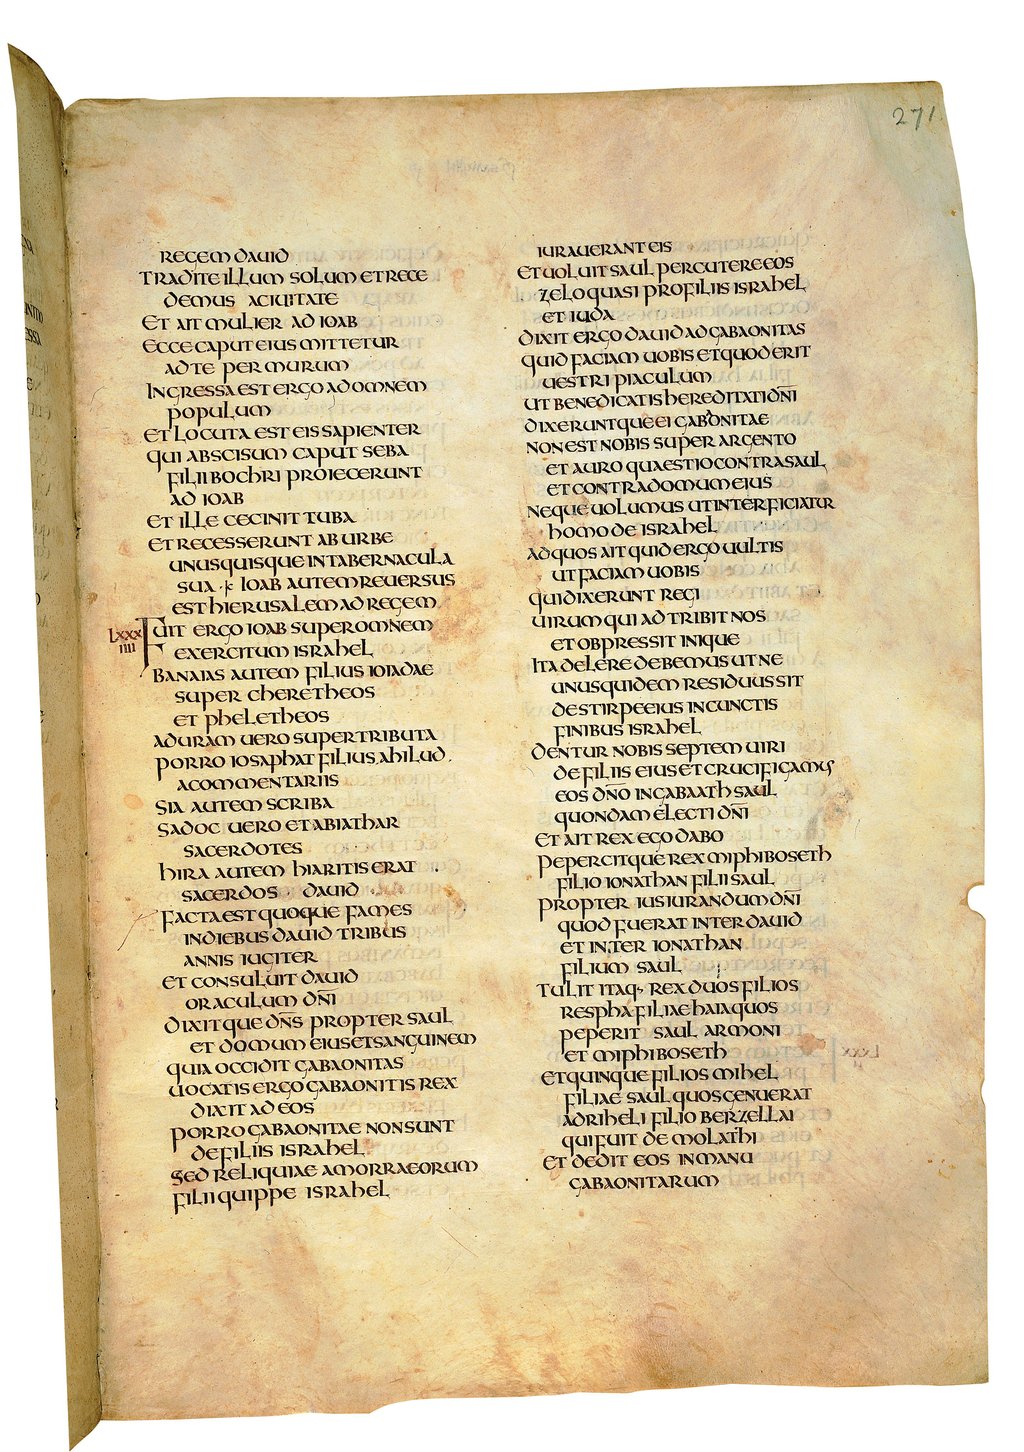 271
REGEM DAUID
TRADITE ILLUM SOLUM ET RECE
DEMUS A CIUITATE
ET AIT MULIER AD IOAB
ECCE CAPUT EIUS MITTETUR
AD TE PER MURUM
INGRESSA EST ERGO AD OMNEM
POPULUM
ET LOCUTA EST EIS SAPIENTER
QUI ABSCISUM CAPUT SEBA
FILII BOCHRI PROIECERUNT
AD IOAB
ET ILLE CECINIT TUBA
ET RECESSERUNT AB URBE
UNUSQUISQUE IN TABERNACULA
SUA IOAB AUTEM REUERSUS
EST HIERUSALEM AD REGEM
LXXX
IIII
FUIT ERGO IOAB SUPER OMNEM
EXERCITUM ISRAHEL
BANAIAS AUTEM FILIUS IOIADAE
SUPER CHERETHEOS
ET PHELETHEOS
ADURAM UERO SUPER TRIBUTA
PORRO IOSAPHAT FILIUS AHILUD
A COMMENTARIIS
SIA AUTEM SCRIBA
SADOC UERO ET ABIATHAR
SACERDOTES
HIRA AUTEM HIARITIS ERAT
SACERDOS DAUID
FACTA EST QUOQUE FAMES
IN DIEBUS DAUID TRIBUS
ANNIS IUGITER
ET CONSULUIT DAUID
ORACULUM DN̄I
DIXITQUE DN̄S PROPTER SAUL
ET DOMUM EIUS ET SANGUINEM
QUIA OCCIDIT GABAONITAS
UOCATIS ERGO GABAONITIS REX
DIXIT AD EOS
PORRO GABAONITAE NON SUNT
DE FILIIS ISRAHEL
SED RELIQUIAE AMORRAEORUM
FILII QUIPPE ISRAHEL
IURAUERANT EIS
ET UOLUIT SAUL PERCUTERE EOS
ZELO QUASI PRO FILIIS ISRAHEL
ET IUDA
DIXIT ERGO DAUID AD GABAONITAS
QUID FACIAM UOBIS ET QUOD ERIT
UESTRI PIACULUM
UT BENEDICATIS HEREDITATI DN̄I
DIXERUNTQUE EI GABAONITAE
NON EST NOBIS SUPER ARGENTO
ET AURO QUAESTIO CONTRA SAUL
ET CONTRA DOMUM EIUS
NEQUE UOLUMUS UT INTERFICIATUR
HOMO DE ISRAHEL
AD QUOS AIT QUID ERGO UULTIS
UT FACIAM UOBIS
QUI DIXERUNT REGI
UIRUM QUI ADTRIBIT NOS
ET OBPRESSIT INIQUE
ITA DELERE DEBEMUS UT NE
UNUS QUIDEM RESIDUUS SIT
DE STIRPE EIUS IN CUNCTIS
FINIBUS ISRAHEL
DENTUR NOBIS SEPTEM UIRI
DE FILIIS EIUS ET CRUCIFIGAMUS
EOS DN̄O IN GABAATH SAUL
QUONDAM ELECTI DN̄I
ET AIT REX EGO DABO
PEPERCITQUE REX MIPHIBOSETH
FILIO IONATHAN FILII SAUL
PROPTER IUSIURANDUM DN̄I
QUOD FUERAT INTER DAUID
ET INTER IONATHAN
FILIUM SAUL
TULIT ITAQ· REX DUOS FILIOS
RESPHA FILIAE HAIA QUOS
PEPERIT SAUL ARMONI
ET MIPHIBOSETH
ET QUINQUE FILIOS MIHEL
FILIAE SAUL QUOS GENUERAT
ADRIHELI FILIO BERZELLAI
QUI FUIT DE MOLATHI
ET DEDIT EOS IN MANU
GABAONITARUM